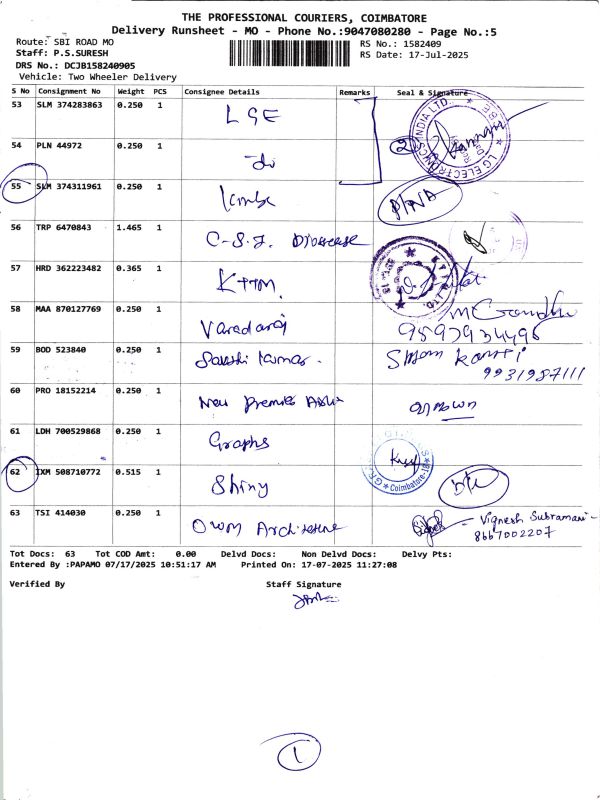 THE PROFESSIONAL COURIERS, COIMBATORE
Delivery Runsheet - MO - Phone No.:9047080280 - Page No.:5
Route: SBI ROAD MO
RS No.: 1582409
Staff: P.S.SURESH
RS Date: 17-Jul-2025
DRS No.: DCJB158240905
Vehicle: Two Wheeler Delivery
S No Consignment No Weight PCS Consignee Details Remarks Seal & Signature
53 SLM 374283863 0.250 1 LGE
LG ELECTRONICS INDIA LTD.
54 PLN 44972 0.250 1 do 2
55 SLM 374311961 0.250 1
56 TRP 6470843 1.465 1 C-S.I.
57 HRD 362223482 0.365 1 KTTM.
58 MAA 870127769 0.250 1 Varadaraj
9597934496
59 BOD 523840 0.250 1 Sakthi Kumar.
9931987111
60 PRO 18152214 0.250 1 New Premier
61 LDH 700529868 0.250 1 Graphs
Coimbatore-18
62 IXM 508710772 0.515 1 Shiny D/L
63 TSI 414030 0.250 1 Own Architecture Vignesh Subramani-
8667002207
Tot Docs: 63 Tot COD Amt: 0.00 Delvd Docs: Non Delvd Docs: Delvy Pts:
Entered By :PAPAMO 07/17/2025 10:51:17 AM Printed On: 17-07-2025 11:27:08
Verified By Staff Signature
1